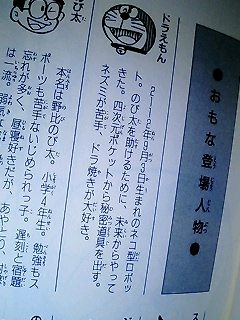 ●おもな登場人物●
ドラえもん
2112年9月3日生まれのネコ型ロボッ
ト。のび太を助けるために、未来からやって
きた。四次元ポケットから秘密道具を出す。
ネズミが苦手、ドラ焼きが大好き。
のび太
本名は野比のび太。小学4年生。勉強もス
ポーツも苦手ないじめられっ子。遅刻と宿題
忘れが多く、昼寝好きだが、あやとり、
は一流。弱気